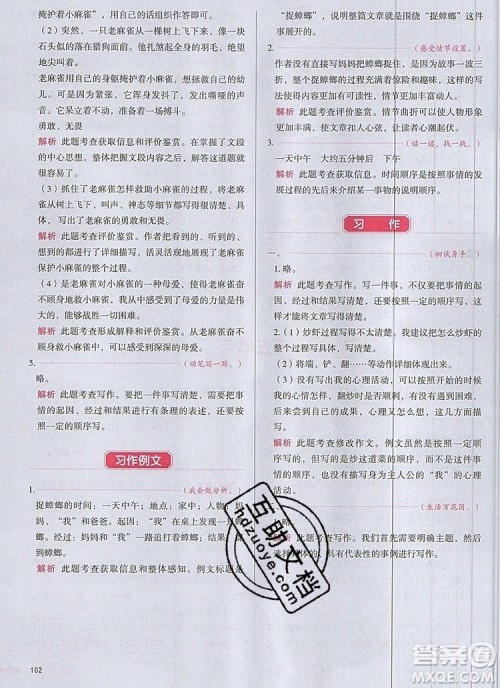 掩护着小麻雀”，用自己的话组织作答即可。
（2）突然，一只老麻雀从一棵树上飞下来，像一块
石头似的落在猎狗面前。它挓挲起全身的羽毛，绝望
地尖叫着。
老麻雀用自己的身躯掩护着小麻雀，想拯救自己的幼
儿。可是因为紧张，它浑身发抖，发出嘶哑的声音。
它呆立着不动，准备着一场搏斗。
勇敢、无畏
解析 此题考查获取信息和评价鉴赏。在文段
的中心思想，在文段内勾画出描写老麻雀的语句就很
容易了。
（3）抓住了老麻雀为了掩护小麻雀不受猎狗伤害，从
树上飞下、叫喊、神态等细节描写，表达清楚、形象。
解析 此题考查评价鉴赏。作者对所有看到、听到的
都进行了详细描写，灵活灵现地描写了老麻雀
保护小麻雀的整个过程。
（4）是老麻雀对小麻雀的一种母爱，使它奋
不顾身地救小麻雀，体现了母爱的伟大。
解析 此题考查形成解释和评价鉴赏。老麻雀奋不
顾身救小麻雀，都是出于对小麻雀的爱，作者通过这
一场面，表现出了深深的母爱。
5. （动笔写一写。）
略。
解析 此题考查写作。要把一件事情写清楚，需要把
事情的起因、经过和结果进行有条理的表述，还要按
照一定的顺序写。
习作例文
1. （我会做分析。）
捉蟑螂的时间：一天中午；地点：家中；人物：妈
妈、“我”和爸爸。起因：“我”在桌上发现了一只
蟑螂；经过：妈妈和“我”一路追打着蟑螂；结果：
“我”消灭了蟑螂。
解析 此题考查获取信息和整体感知。例文标题是
102
“捉蟑螂”，说明整篇文章就是围绕“捉蟑螂”这件
事展开的。
2. （感受情节设置。）
作者没有直接写妈妈把蟑螂打死，而是写打蟑螂的过
程，整个捉蟑螂过程充满着惊险和趣味，这样的情节
更加有可读性，情节更加丰富，也能使人物形象
更加丰富动人，文章扣人心弦，让读者心潮起伏。
解析 此题考查评价鉴赏。情节一波三折，使文章更
加耐人寻味，读者也会通过文章情节的跌宕起伏，让
读者心潮起伏。
3. （读一读，找一找。）
一天中午 大约五分钟后 下午
解析 此题考查获取信息。时间顺序是按照事情的发
展过程的先后来介绍某一事物的说明顺序。
习 作
一、 （初试身手。）
1.略。
解析 此题考查写作。写清楚一件事，需要按照事情
的起因、经过、结果，并按照一定的顺序写，这样才
能写完整，写清楚。
2.（1）炒虾过程写得不太清楚。我建议把怎么炒虾的
经过写清楚。
（2）将端、铲、翻……等动作详细体现出来。
（3）可以写出自己的心理活动，比如开始的时候怎么
想的，翻炒时是怎样的心理活动，最后是怎样的心理
活动。可以按照开始、经过、结束的心理这一方面去
描写。
解析 此题考查修改作文。例文虽然描写了炒虾的过
程，但是不够细致，还可以从动作、心理等方面完善。
二、 （生活万花筒。）
略。
解析 此题考查写作。我们首先需要明确主题，然后
选择熟悉的、具有代表性的事例进行写作。
互助文档
hdzuoye.com
答案圈
MXQE.COM